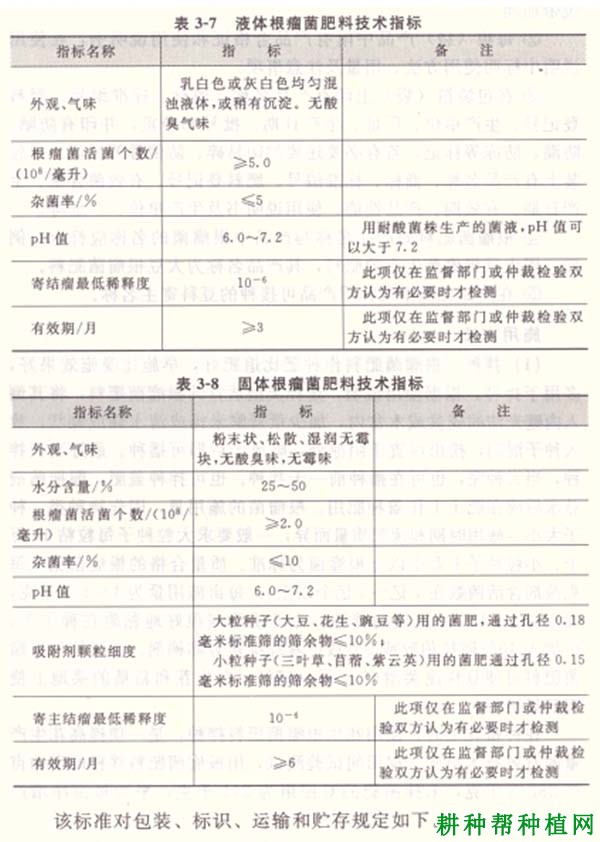 表 3-7 液体根瘤菌肥料技术指标
指标名称 指 标 备 注
外观、气味 乳白色或灰白色均匀混
浊液体,或稍有沉淀。无酸
臭气味
根瘤菌活菌个数/
(10⁸/毫升) ≥5.0
杂菌率/% ≤5
pH 值 6.0~7.2 用耐酸菌株生产的菌液,pH 值可
以大于 7.2
寄结瘤最低稀释度 10⁻⁶ 此项仅在监督部门或仲裁检验双
方认为有必要时才检测
有效期/月 ≥3 此项仅在监督部门或仲裁检验双
方认为有必要时才检测
表 3-8 固体根瘤菌肥料技术指标
指标名称 指 标 备 注
外观、气味 粉末状、松散、湿润无霉
块,无酸臭味,无霉味
水分含量/% 25~50
根瘤菌活菌个数/(10⁸/
毫升) ≥2.0
杂菌率/% ≤10
pH 值 6.0~7.2
吸附剂颗粒细度 大粒种子(大豆、花生、豌豆等)用的菌肥,通过孔径 0.18
毫米标准筛的筛余物≤10%;
小粒种子(三叶草、苜蓿、紫云英)用的菌肥通过孔径 0.15
毫米标准筛的筛余物≤10%
寄主结瘤最低稀释度 10⁻⁶ 此项仅在监督部门或仲裁检
验双方认为有必要时才检测
有效期/月 ≥6 此项仅在监督部门或仲裁检
验双方认为有必要时才检测
该标准对包装、标识、运输和贮存规定如下。
耕种帮种植网